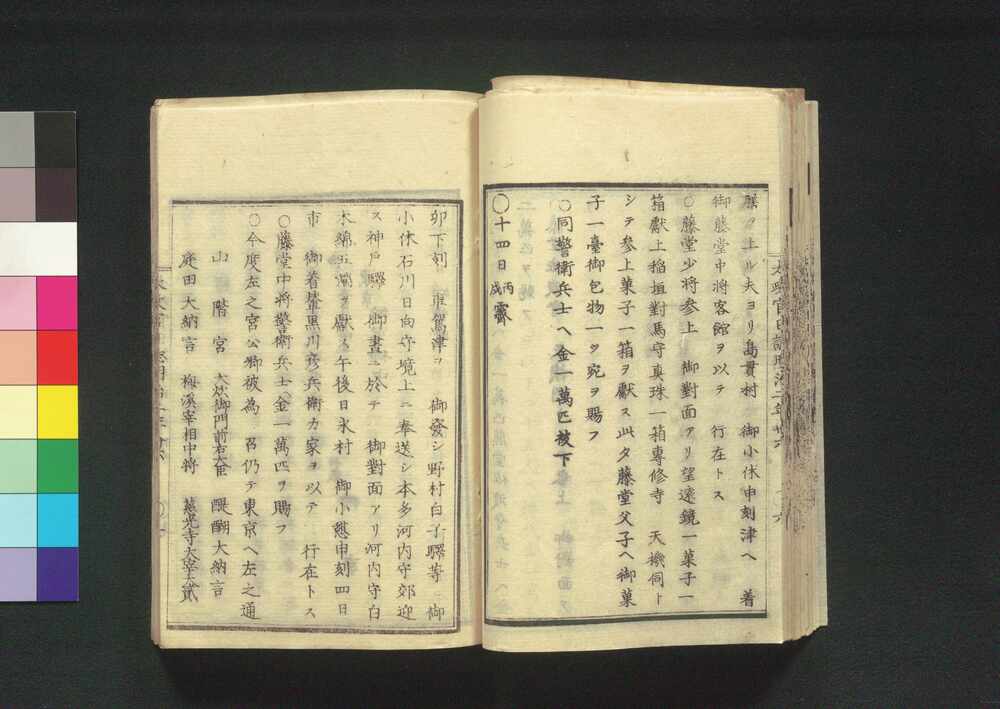 膳ヲ上ル夫ヨリ島貫村　御小休申刻津ヘ　着
御藤堂中将客館ヲ以テ　行在トス
○藤堂少将参上　御對面アリ望遠鏡一菓子一
箱獻上稲垣對馬守真珠一箱專修寺　天機伺ト
シテ参上菓子一箱ヲ獻ス此夕藤堂父子ヘ御菓
子一臺御包物一ツ宛ヲ賜フ
○同警衛兵士ヘ金一萬匹被下
○十四日丙戌霽
卯下刻　車駕津ヲ　御發シ野村白子驛等ニ御
小休石川日向守境上ニ奉送シ本多河内守郊迎
ス神戸驛　御晝ニ於テ　御對面アリ河内守白
木綿五
ヲ獻ス午後日永村　御小憩申刻四日
市　御着輦黒川彦兵衛カ家ヲ以テ　行在トス
○藤堂中将警衛兵士ヘ金一萬匹ヲ賜フ
○今度左之宮公卿被為　召仍テ東京ヘ左之通
山階宮　大炊御門前右大臣　醍醐大納言
庭田大納言　梅溪宰相中将　慈光寺大宰大貳